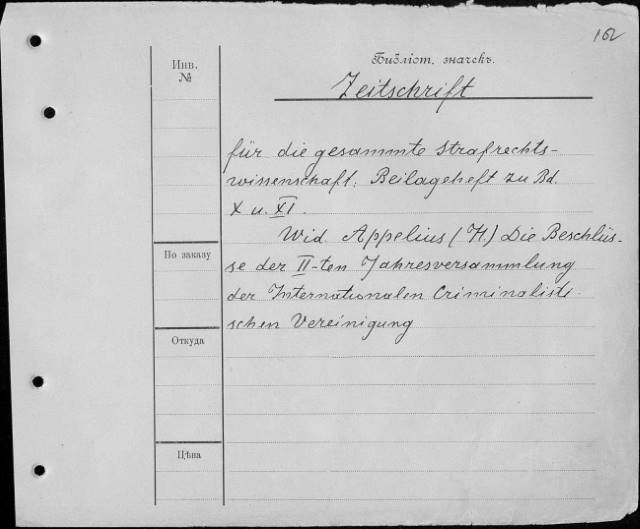 162
Библіот. значекъ.
Инв.
№
Zeitschrift
für die gesammte Strafrechts-
wissenschaft. Beilageheft zu Bd.
X u. XI.
Wid. Appelius (H.) Die Beschlüs-
По заказу
se der II-ten Jahresversammlung
der Internationalen Criminalisti-
schen Vereinigung
Откуда
Цѣна